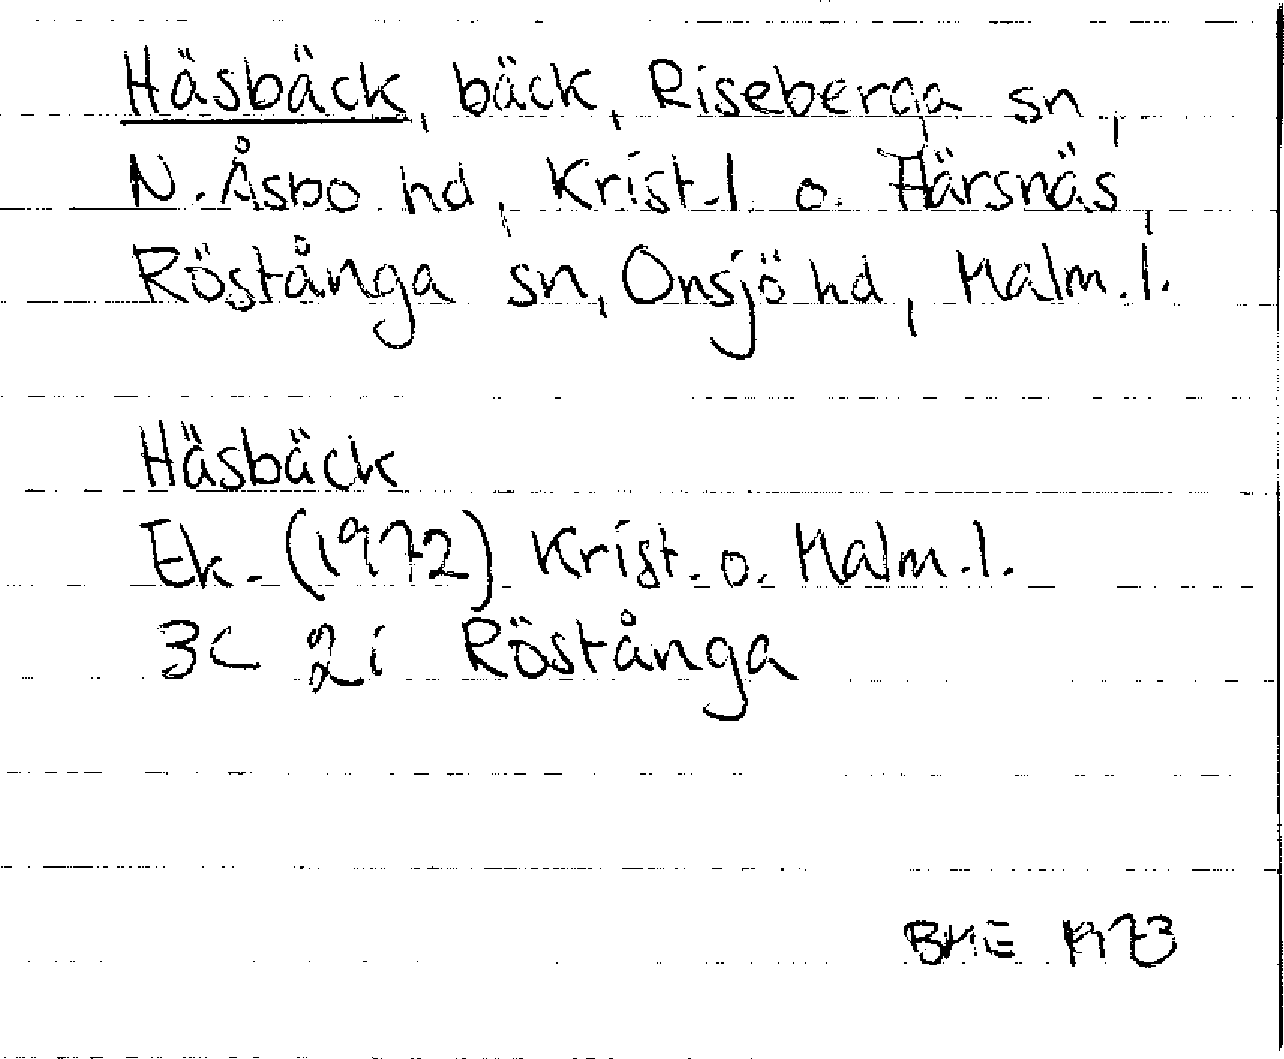 Häsbäck, bäck, Riseberga sn,
N. Åsbo hd, Krist. l. o. Färsnäs,
Röstånga sn, Onsjö hd, Malm. l.
Häsbäck
Ek. (1972) Krist. o. Malm. l.
3C 2i Röstånga
BME 1973